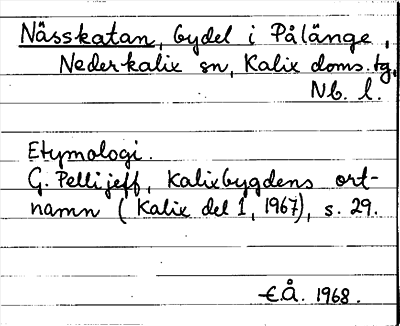 Nässkatan, bydel i Pålänge,
Nederkalix sn, Kalix doms.tg,
Nb. l.
Etymologi.
G. Pellijeff, Kalixbygdens ort-
namn (Kalix del 1, 1967), s. 29.
E.Å. 1968.